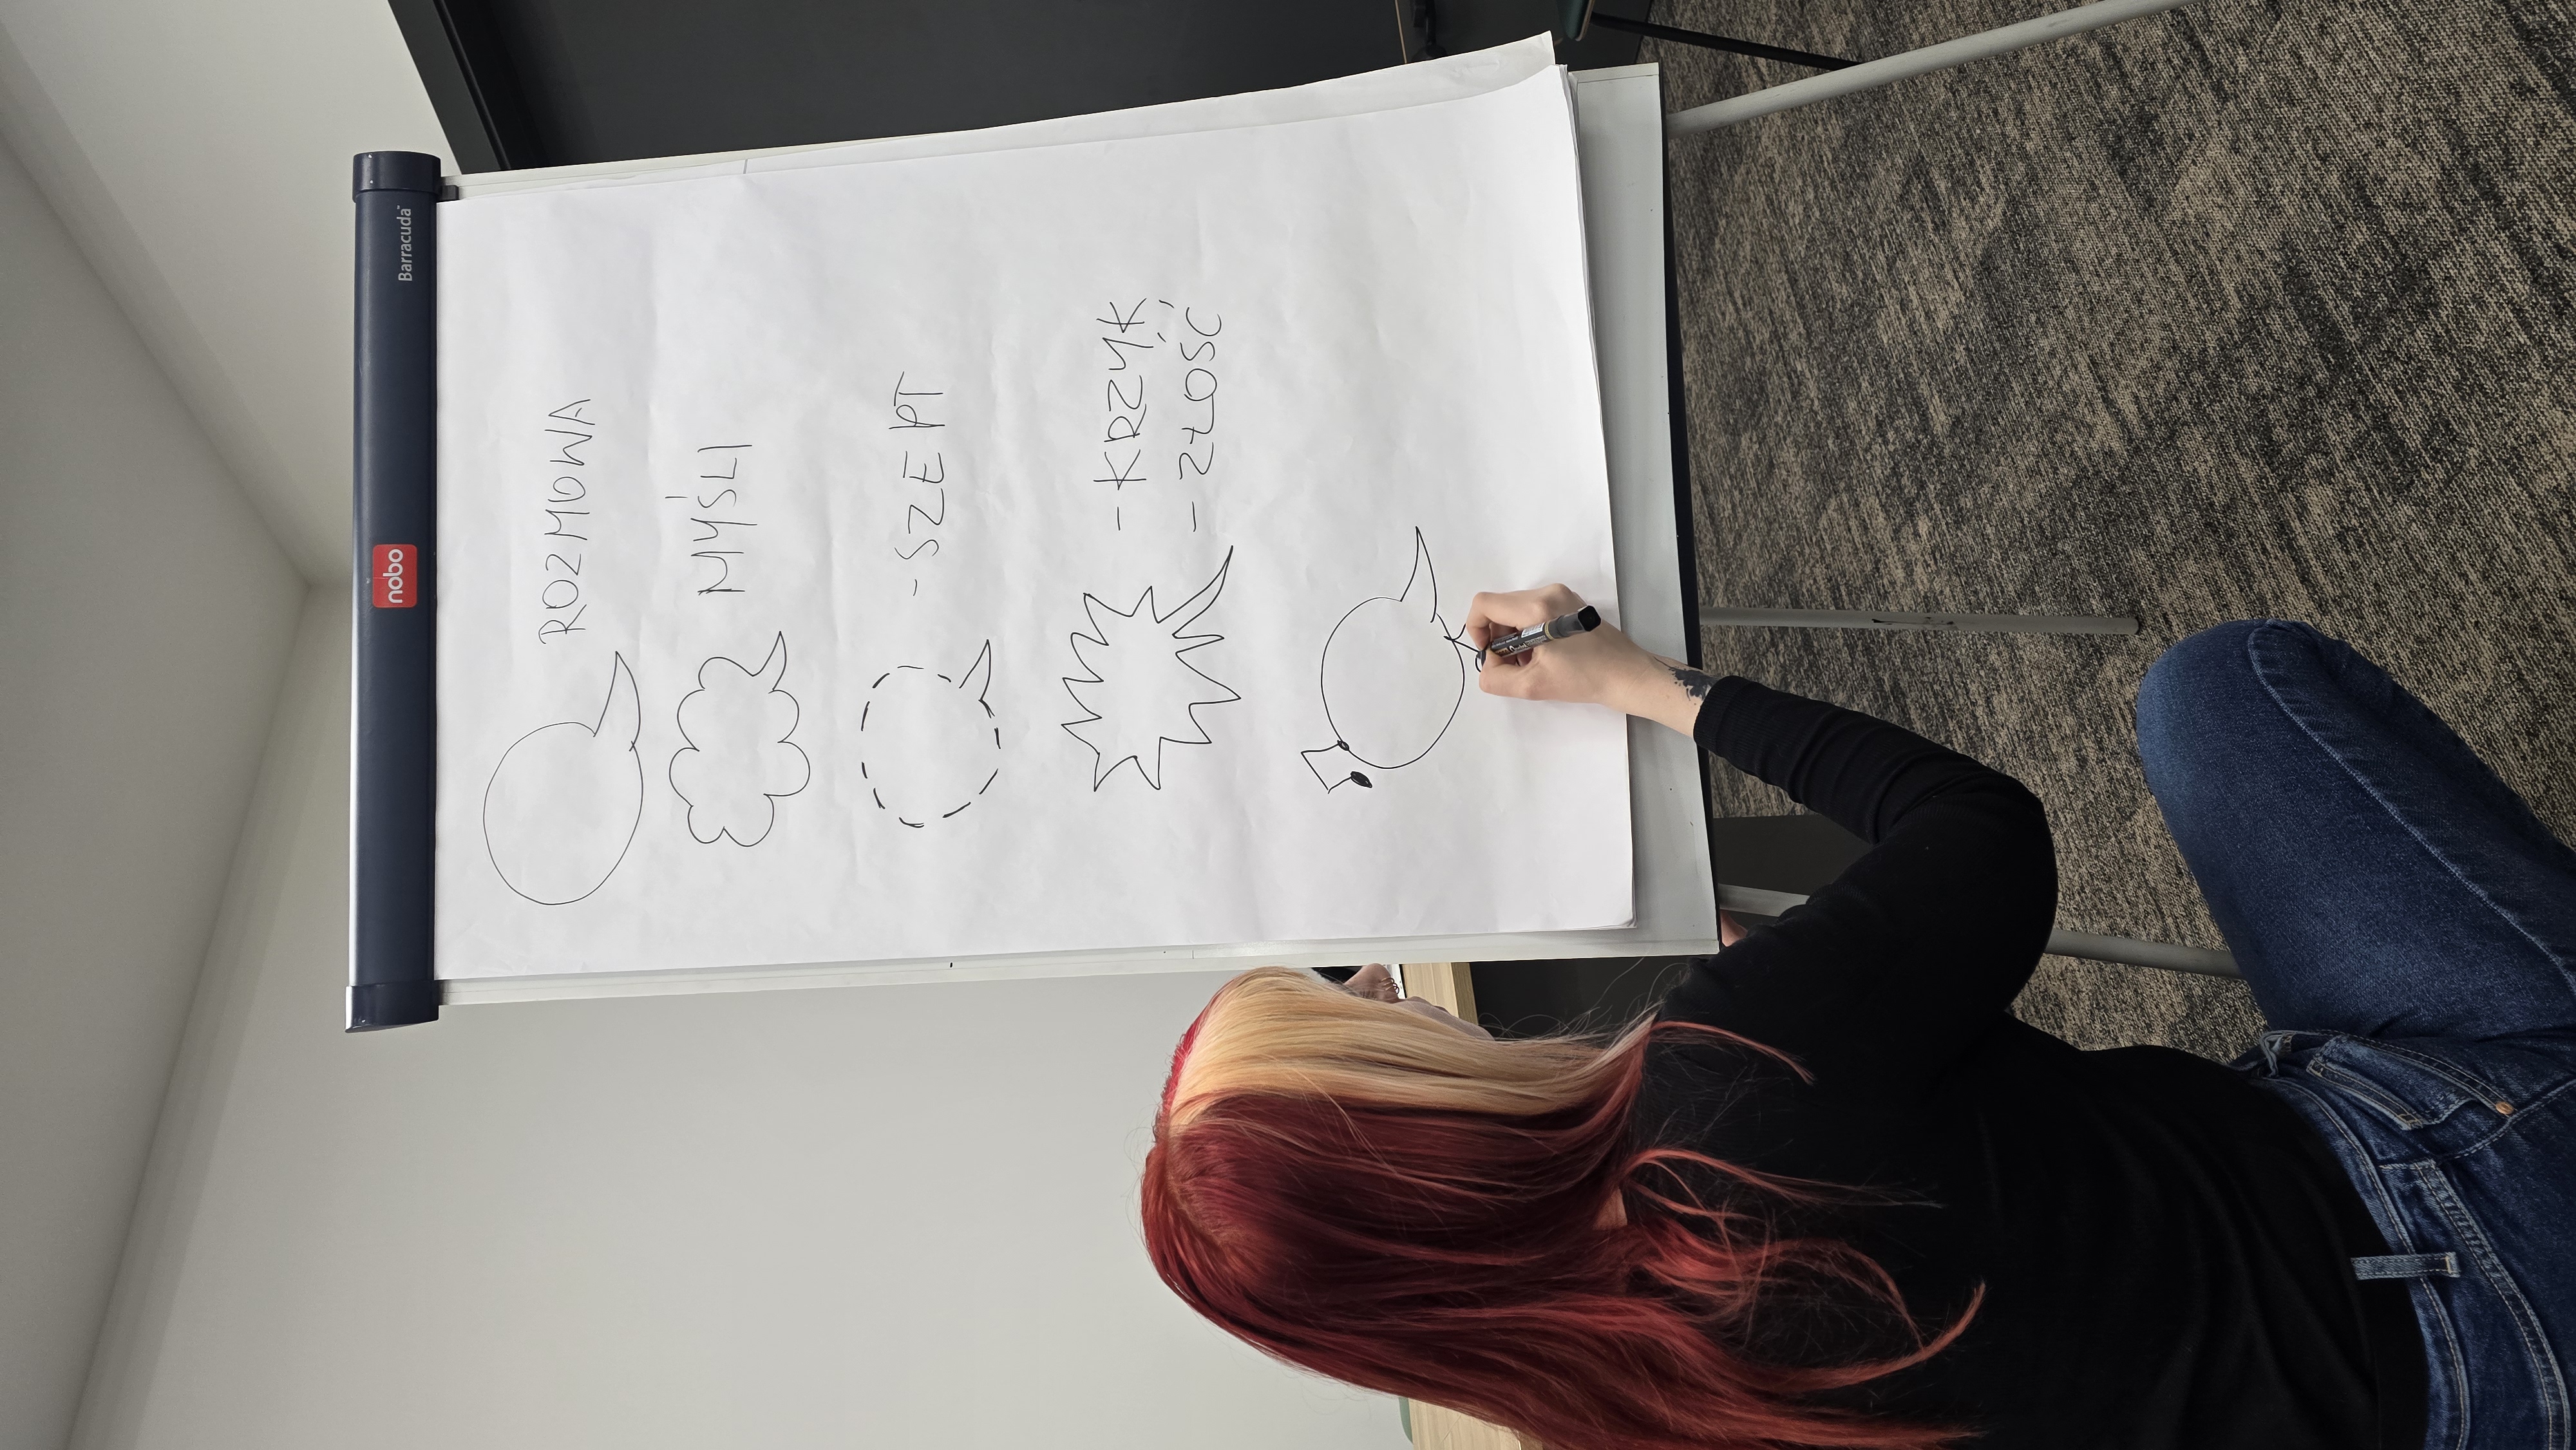 Barracuda™
nobo
ROZMOWA
MYŚLI
- SZEPT
- KRZYK
- ZŁOŚĆ